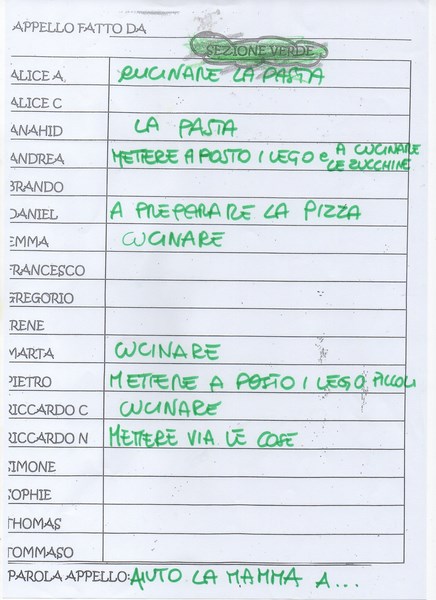 APPELLO FATTO DA
SEZIONE VERDE
ALICE A. CUCINARE LA PASTA
ALICE C
ANAHID LA PASTA
ANDREA METTERE A POSTO I LEGO e A CUCINARE
LE ZUCCHINE
BRANDO
DANIEL A PREPARARE LA PIZZA
EMMA CUCINARE
FRANCESCO
GREGORIO
IRENE
MARTA CUCINARE
PIETRO METTERE A POSTO I LEGO PICCOLI
RICCARDO C CUCINARE
RICCARDO N METTERE VIA LE COSE
SIMONE
SOPHIE
THOMAS
TOMMASO
PAROLA APPELLO: AIUTO LA MAMMA A...